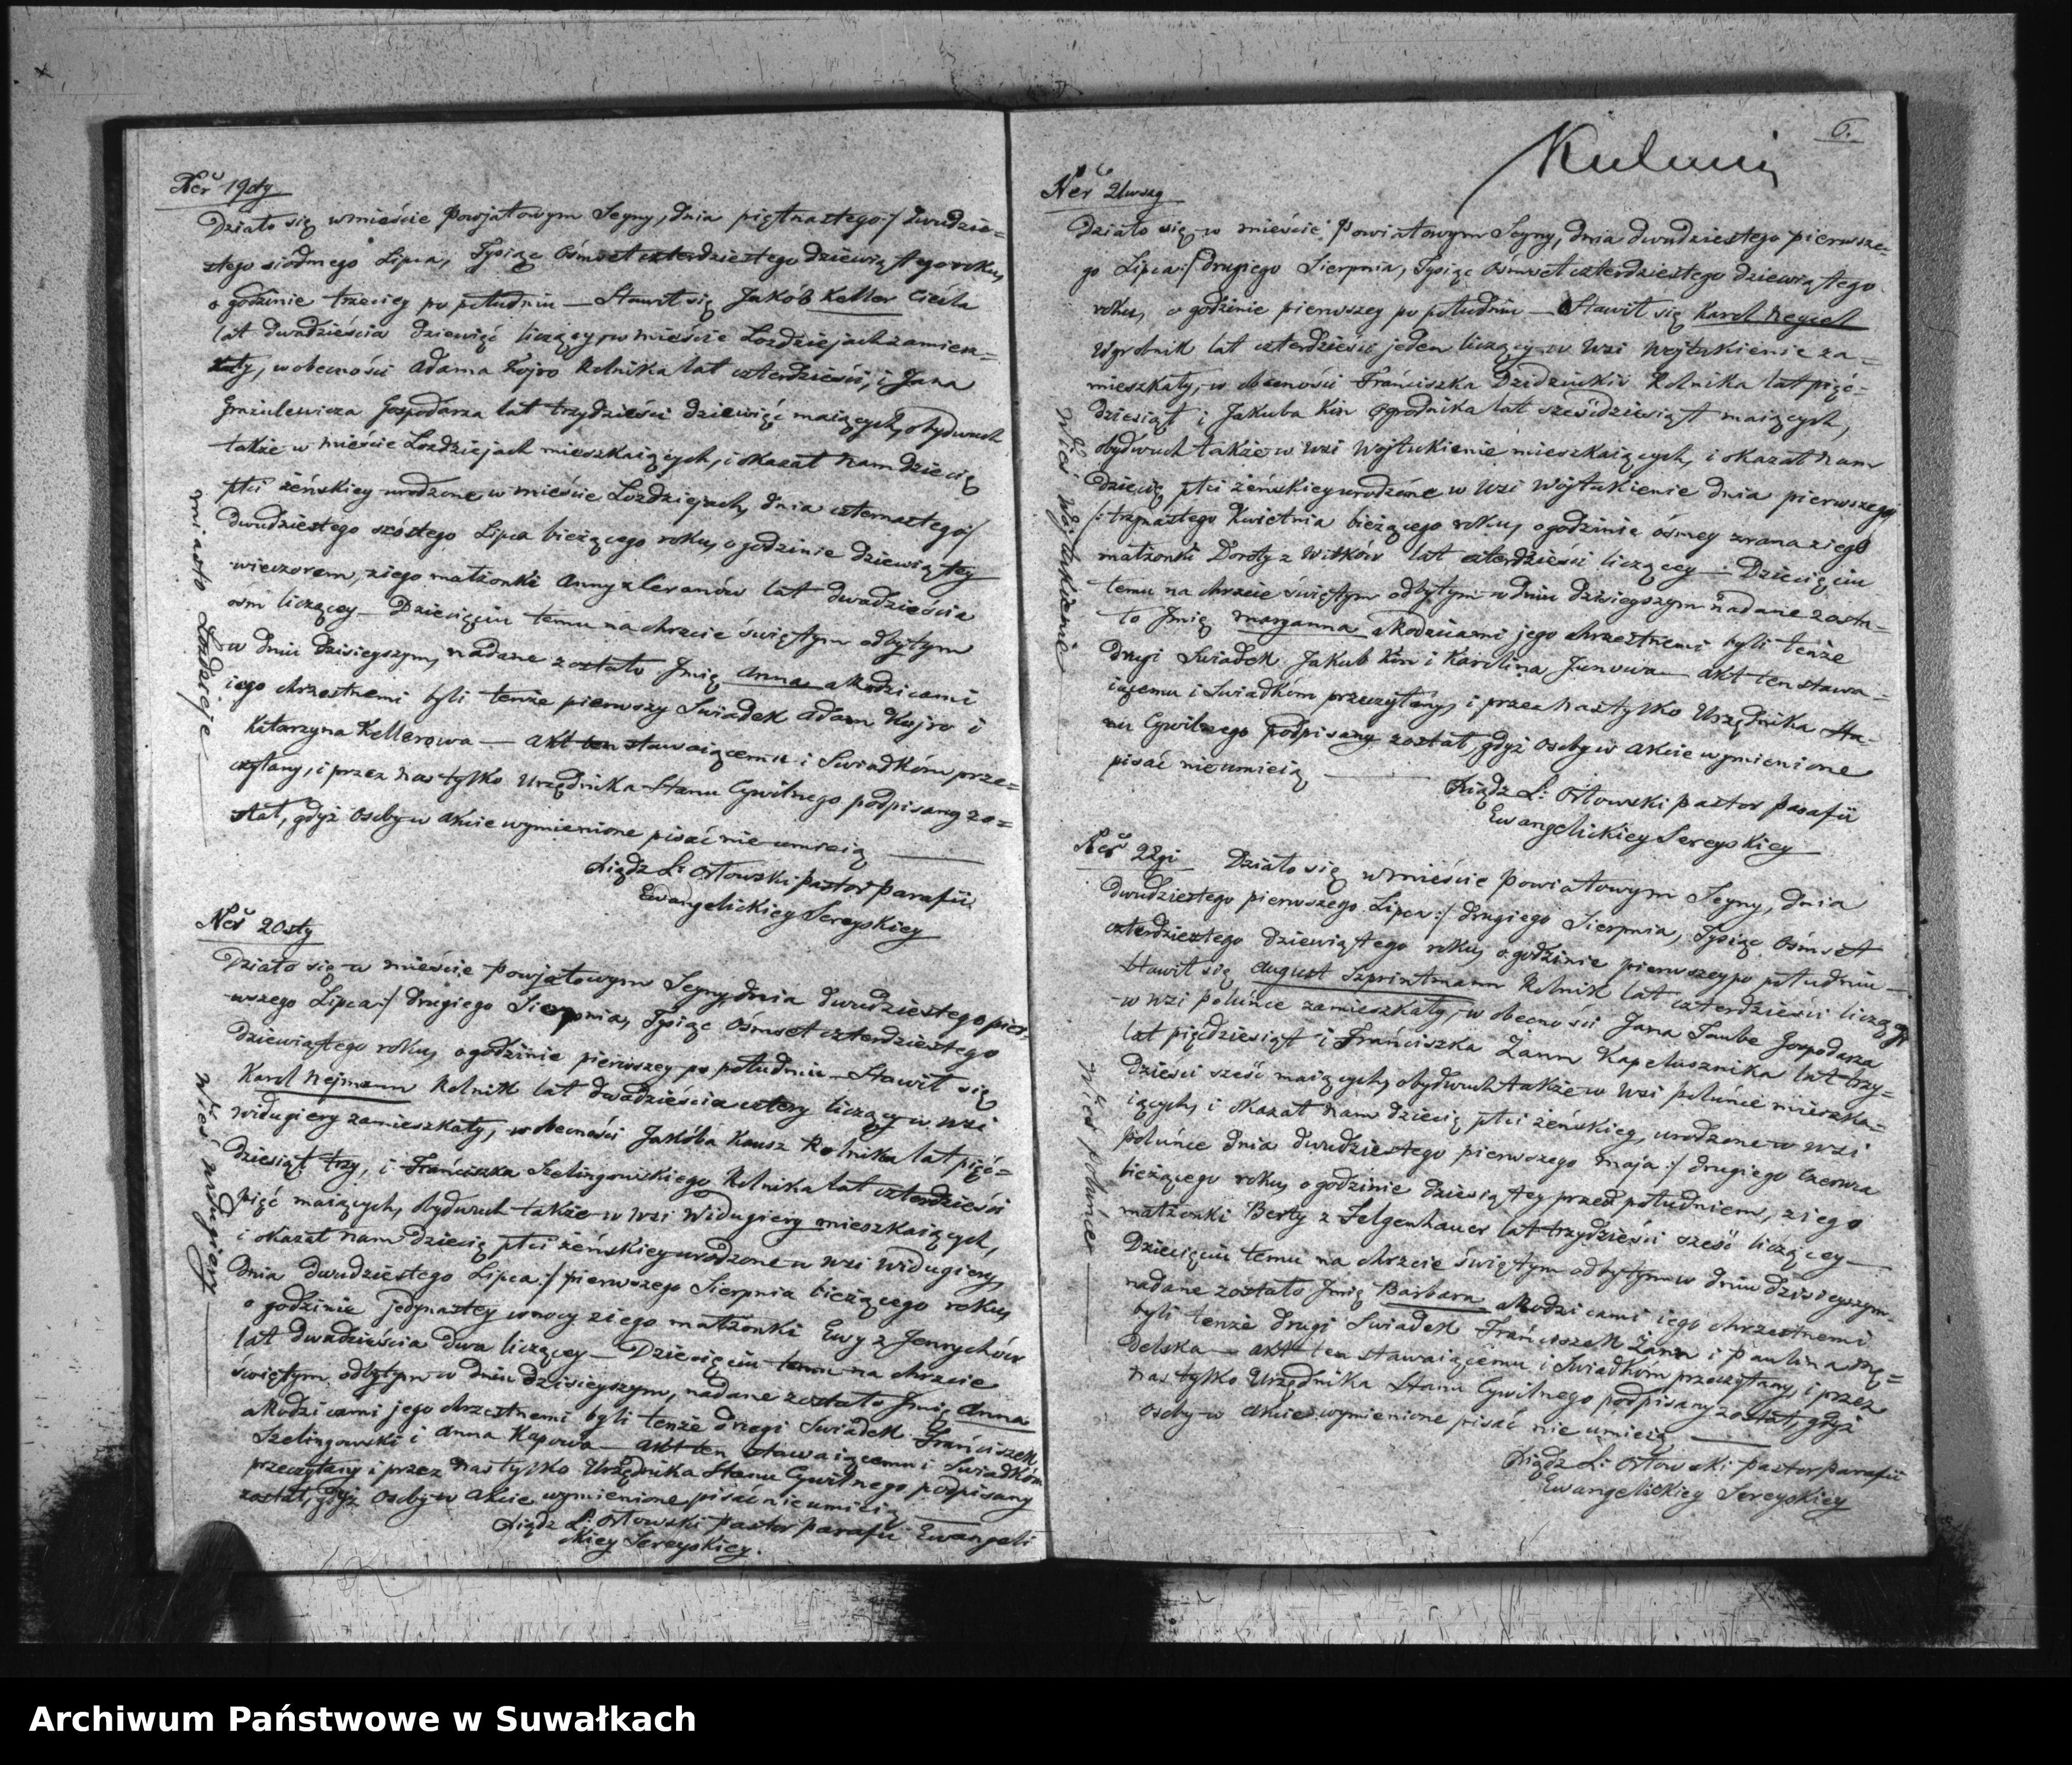 Ner 19sty
Działo się w mieście Powjatowym Seyny, dnia piętnastego :/ dwudzie=
stego siódmego Lipca, Tysiąc Ośmset czterdziestego dziewiątego roku,
o godzinie trzeciey po południu — Stawił się Jakób Keller Cieśla
lat dwadzieścia dziewięć liczący, w mieście Łoździejach zamiesz=
kały, w obecności Adama Kojro Rolnika lat czterdzieści, i Jana
Gospodarza lat trzydzieści dziewięć maiących, obydwuch
także w mieście Łoździejach mieszkaiących, i okazał nam dziecię
płci żeńskiey urodzone w mieście Łoździejach, dnia czternastego :/
dwudziestego szóstego Lipca bieżącego roku, o godzinie dziewiątey
wieczorem, z iego małżonki Anny z lat dwadzieścia
osm liczącey — Dziecięciu temu na chrzcie świętym odbytym
w dniu dzisieyszym, nadane zostało Jmię Anna a Rodzicami
iego chrzestnemi byli tenże pierwszy Swiadek Adam Kojro i
Katarzyna Kellerowa — Akt ten stawaiącemu i Swiadkóm prze=
czytany, i przez nas tylko Urzędnika Stanu Cywilnego podpisany zo=
stał, gdyż Osoby w Akcie wymienione pisać nie umieią
Xiądz L: Orłowski pastor parafii
Ewangelickiey Sereyskiey
miasto Łozdzieje
Ner 20sty
Działo się w mieście Powjatowym Seyny, dnia dwudziestego pier=
wszego Lipca :/ drugiego Sierpnia, Tysiąc Ośmset czterdziestego
dziewiątego roku, o godzinie pierwszey po południu — Stawił się
Karol Nejmann Rolnik lat dwadzieścia cztery liczący w wsi
Widugiery zamieszkały, w obecności Jakóba Kausz Rolnika lat pięć=
dziesiąt trzy, i Franciszka Szelingowskiego Rolnika lat czterdzieści
pięć maiących, obydwuch także w wsi Widugiery mieszkaiących,
i okazał nam dziecię płci żeńskiey urodzone w wsi Widugiery,
dnia dwudziestego Lipca :/ pierwszego Sierpnia bieżącego roku,
o godzinie jedynastey w nocy z iego małżonki Ewy z Jennychów
lat dwadzieścia dwa liczącey — Dziecięciu temu na chrzcie
świętym odbytym w dniu dzisieyszym, nadane zostało Jmię Anna
a Rodzicami jego chrzestnemi byli tenże drugi Swiadek Franciszek
Szelingowski i Anna Kapowa — Akt ten stawaiącemu i Swiadkóm
przeczytany i przez nas tylko Urzędnika Stanu Cywilnego podpisany
został, gdyż Osoby w Akcie wymienione pisać nie umieią
Xiądz L: Orłowski pastor parafii Ewangeli
ckiey Sereyskiey.
Wieś Widugiery
6.
Ner 21wszy
Działo się w mieście Powiatowym Seyny, dnia dwudziestego pierwsze=
go Lipca :/ drugiego Sierpnia, Tysiąc Ośmset czterdziestego dziewiątego
roku, o godzinie pierwszey po południu — Stawił się Karol
Wyrobnik lat czterdzieści jeden liczący w wsi Wojtukienie za=
mieszkały, w obecności Franciszka Rolnika lat pięć=
dziesiąt i Jakuba Kin Ogrodnika lat sześćdziesiąt maiących,
obydwuch także w wsi Wojtukienie mieszkaiących, i okazał nam
dziecię płci żeńskiey urodzone w wsi Wojtukienie dnia pierwszego
/: trzynastego Kwietnia bieżącego roku, o godzinie ósmey zrana z iego
małżonki Doroty z Witków lat czterdzieści liczącey — Dziecięciu
temu na chrzcie świętym odbytym w dniu dzisieyszym nadane zosta=
ło Jmię Maryanna a Rodzicami jego chrzestnemi byli tenże
drugi Swiadek Jakub Kin i Karolina Junowa — Akt ten stawa=
iącemu i Swiadkóm przeczytany, i przez nas tylko Urzędnika Sta=
nu Cywilnego podpisany został, gdyż Osoby w Akcie wymienione
pisać nie umieią
Xiądz L: Orłowski pastor parafii
Ewangelickiey Sereyskiey
Wieś Wojtukienie
Ner 22gi Działo się w mieście Powiatowym Seyny, dnia
dwudziestego pierwszego Lipca :/ drugiego Sierpnia, Tysiąc Ośmset
czterdziestego dziewiątego roku, o godzinie pierwszey po południu —
Stawił się August Szprintmann Rolnik lat czterdzieści liczący
w wsi Poluńce zamieszkały, w obecności Jana Taube Gospodarza
lat pięćdziesiąt i Franciszka Zann Kapelusznika lat trzy=
dzieści sześć maiących, obydwuch także w wsi Poluńce mieszka=
iących, i okazał nam dziecię płci żeńskiey, urodzone w wsi
Poluńce dnia dwudziestego pierwszego Maja :/ drugiego Czerwca
bieżącego roku, o godzinie dziesiątey przed południem, z iego
małżonki Berty z Felgenhauer lat trzydzieści sześć liczącey —
Dziecięciu temu na chrzcie świętym odbytym w dniu dzisieyszym
nadane zostało Jmię Barbara a Rodzicami iego chrzestnemi
byli tenże drugi Swiadek Franciszek Zann i Paulina Mę=
delska — Akt ten stawaiącemu i Swiadkóm przeczytany, i przez
nas tylko Urzędnika Stanu Cywilnego podpisany został, gdyż
Osoby w Akcie wymienione pisać nie umieią
Xiądz L: Orłowski pastor parafii
Ewangelickiey Sereyskiey
Wieś Poluńce
Archiwum Państwowe w Suwałkach